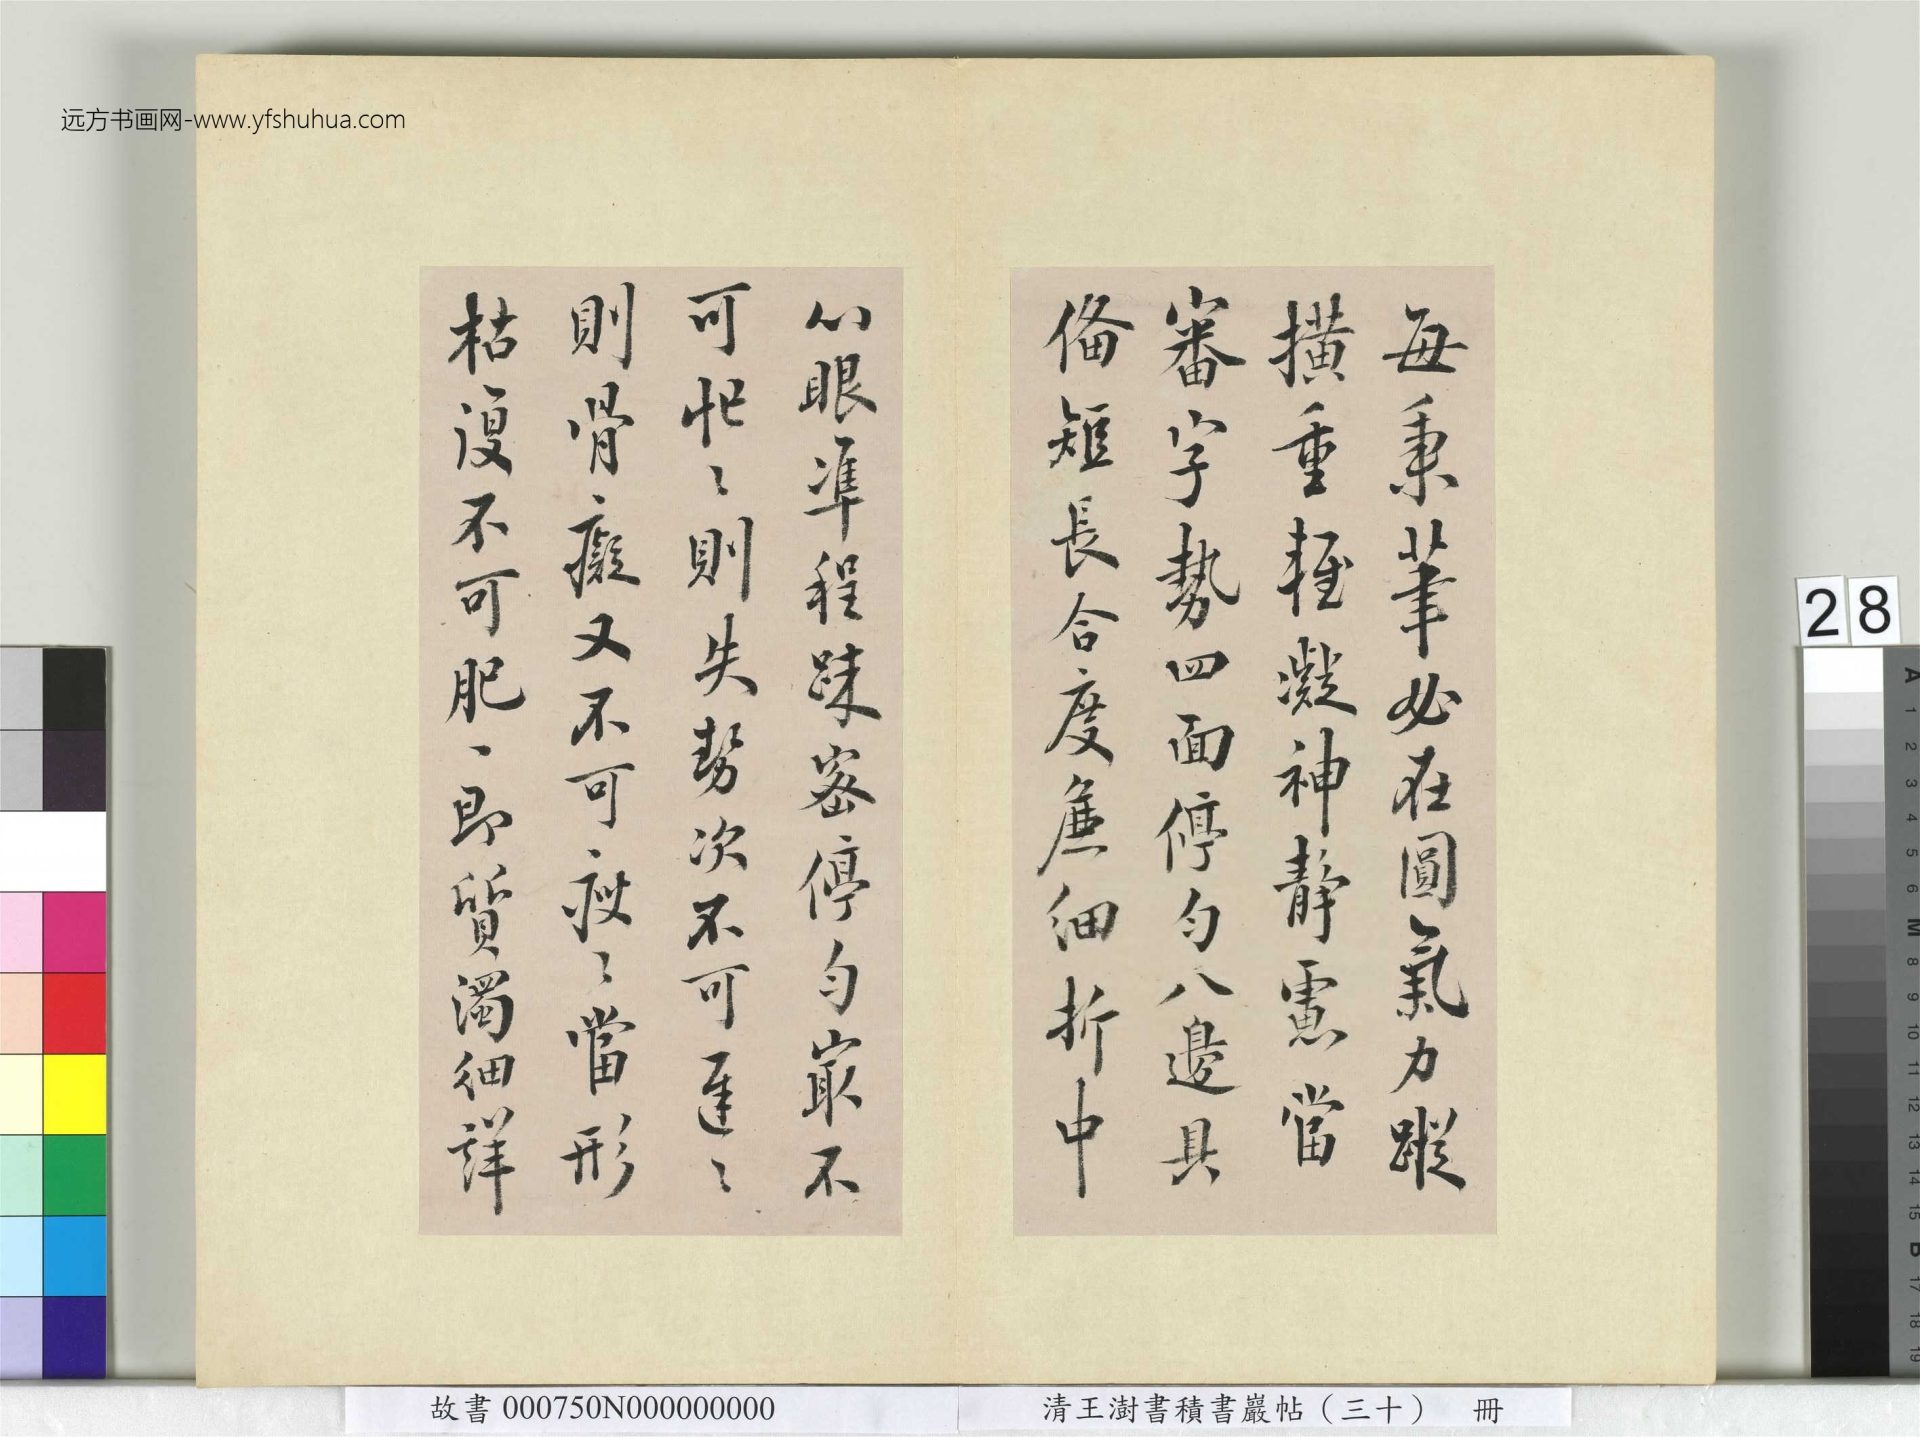 远方书画网-www.yfshuhua.com
每秉筆必在圓氣力蹤
撗重輕凝神静慮當
審字勢四面停勻八邊具
俻短長合度麄細折中
心眼準程踈宻停勻冣不
可忙〻則失勢次不可遲〻
則骨癡又不可瘦〻當形
枯復不可肥〻即質濁細詳
28
A 1 2 3 4 5 6 M 8 9 10 11 12 13 14 15 B 17 18 19
故書 000750N000000000
清王澍書積書巖帖（三十） 冊